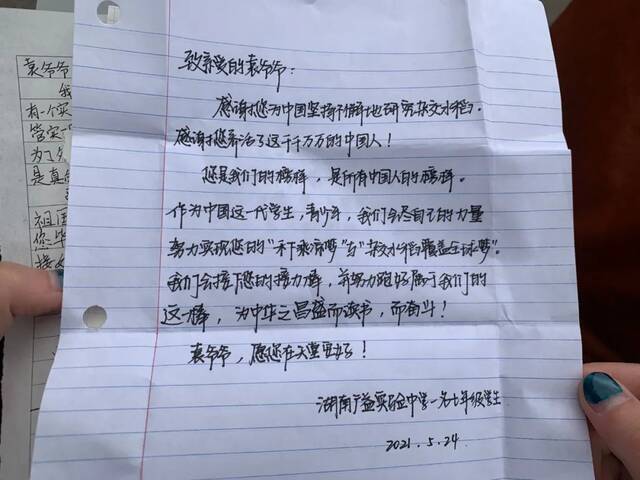 致亲爱的袁爷爷：
感谢您为中国坚持不懈地研究杂交水稻。
感谢您养活了这千千万万的中国人！
您是我们的榜样，是所有中国人的榜样。
作为中国这一代学生，青少年，我们会尽自己的力量
努力实现您的“禾下乘凉梦”与“杂交水稻覆盖全球梦”。
我们会接下您的接力棒，并努力跑好属于我们的
这一棒，为中华之昌盛而读书，而奋斗！
袁爷爷，愿您在天堂安好！
湖南广益实验中学一名七年级学生
2021.5.24
袁爷爷
我
有一个实
管实一
为了
是真
祖国
您毕